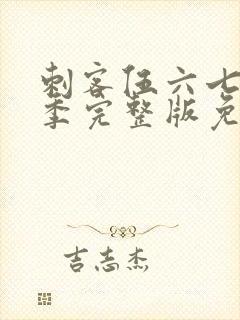 刺客伍六七
季完整版免
吉志杰